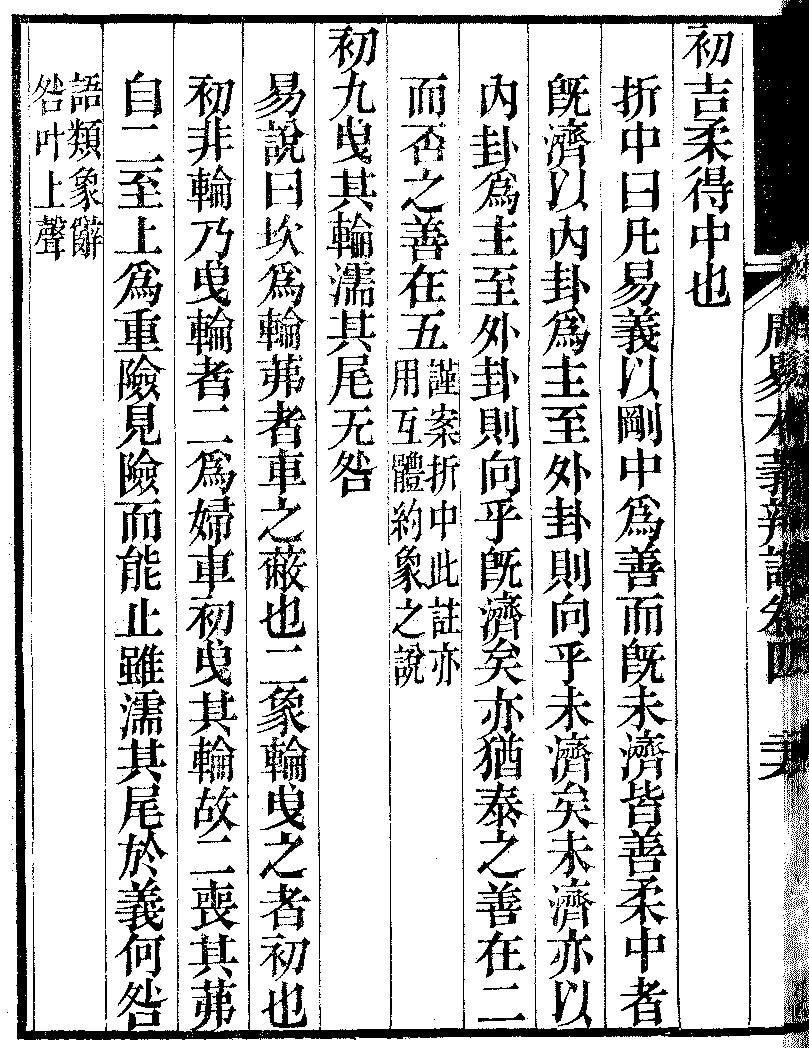 初吉柔得中也
折中曰凡易義以剛中爲善而旣未濟皆善柔中者
旣濟以內卦爲主至外卦則向乎未濟矣未濟亦以
內卦爲主至外卦則向乎旣濟矣亦猶泰之善在二
而否之善在五謹案折中此註亦
用互體約象之說
初九曳其輪濡其尾无咎
易說曰坎爲輪茀者車之蔽也二象輪曳之者初也
初非輪乃曳輪者二爲婦車初曳其輪故二喪其茀
自二至上爲重險見險而能止雖濡其尾於義何咎
語類象辭
咎叶上聲
周易本義辨證卷四